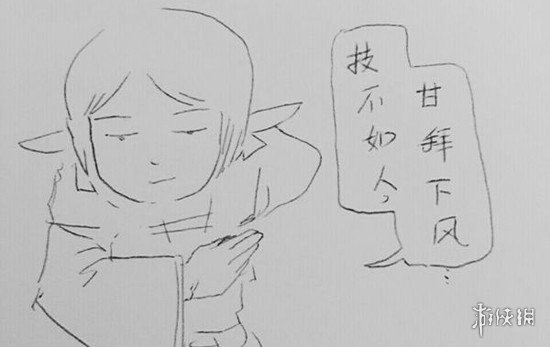 技不如人，
甘拜下风…
游侠网